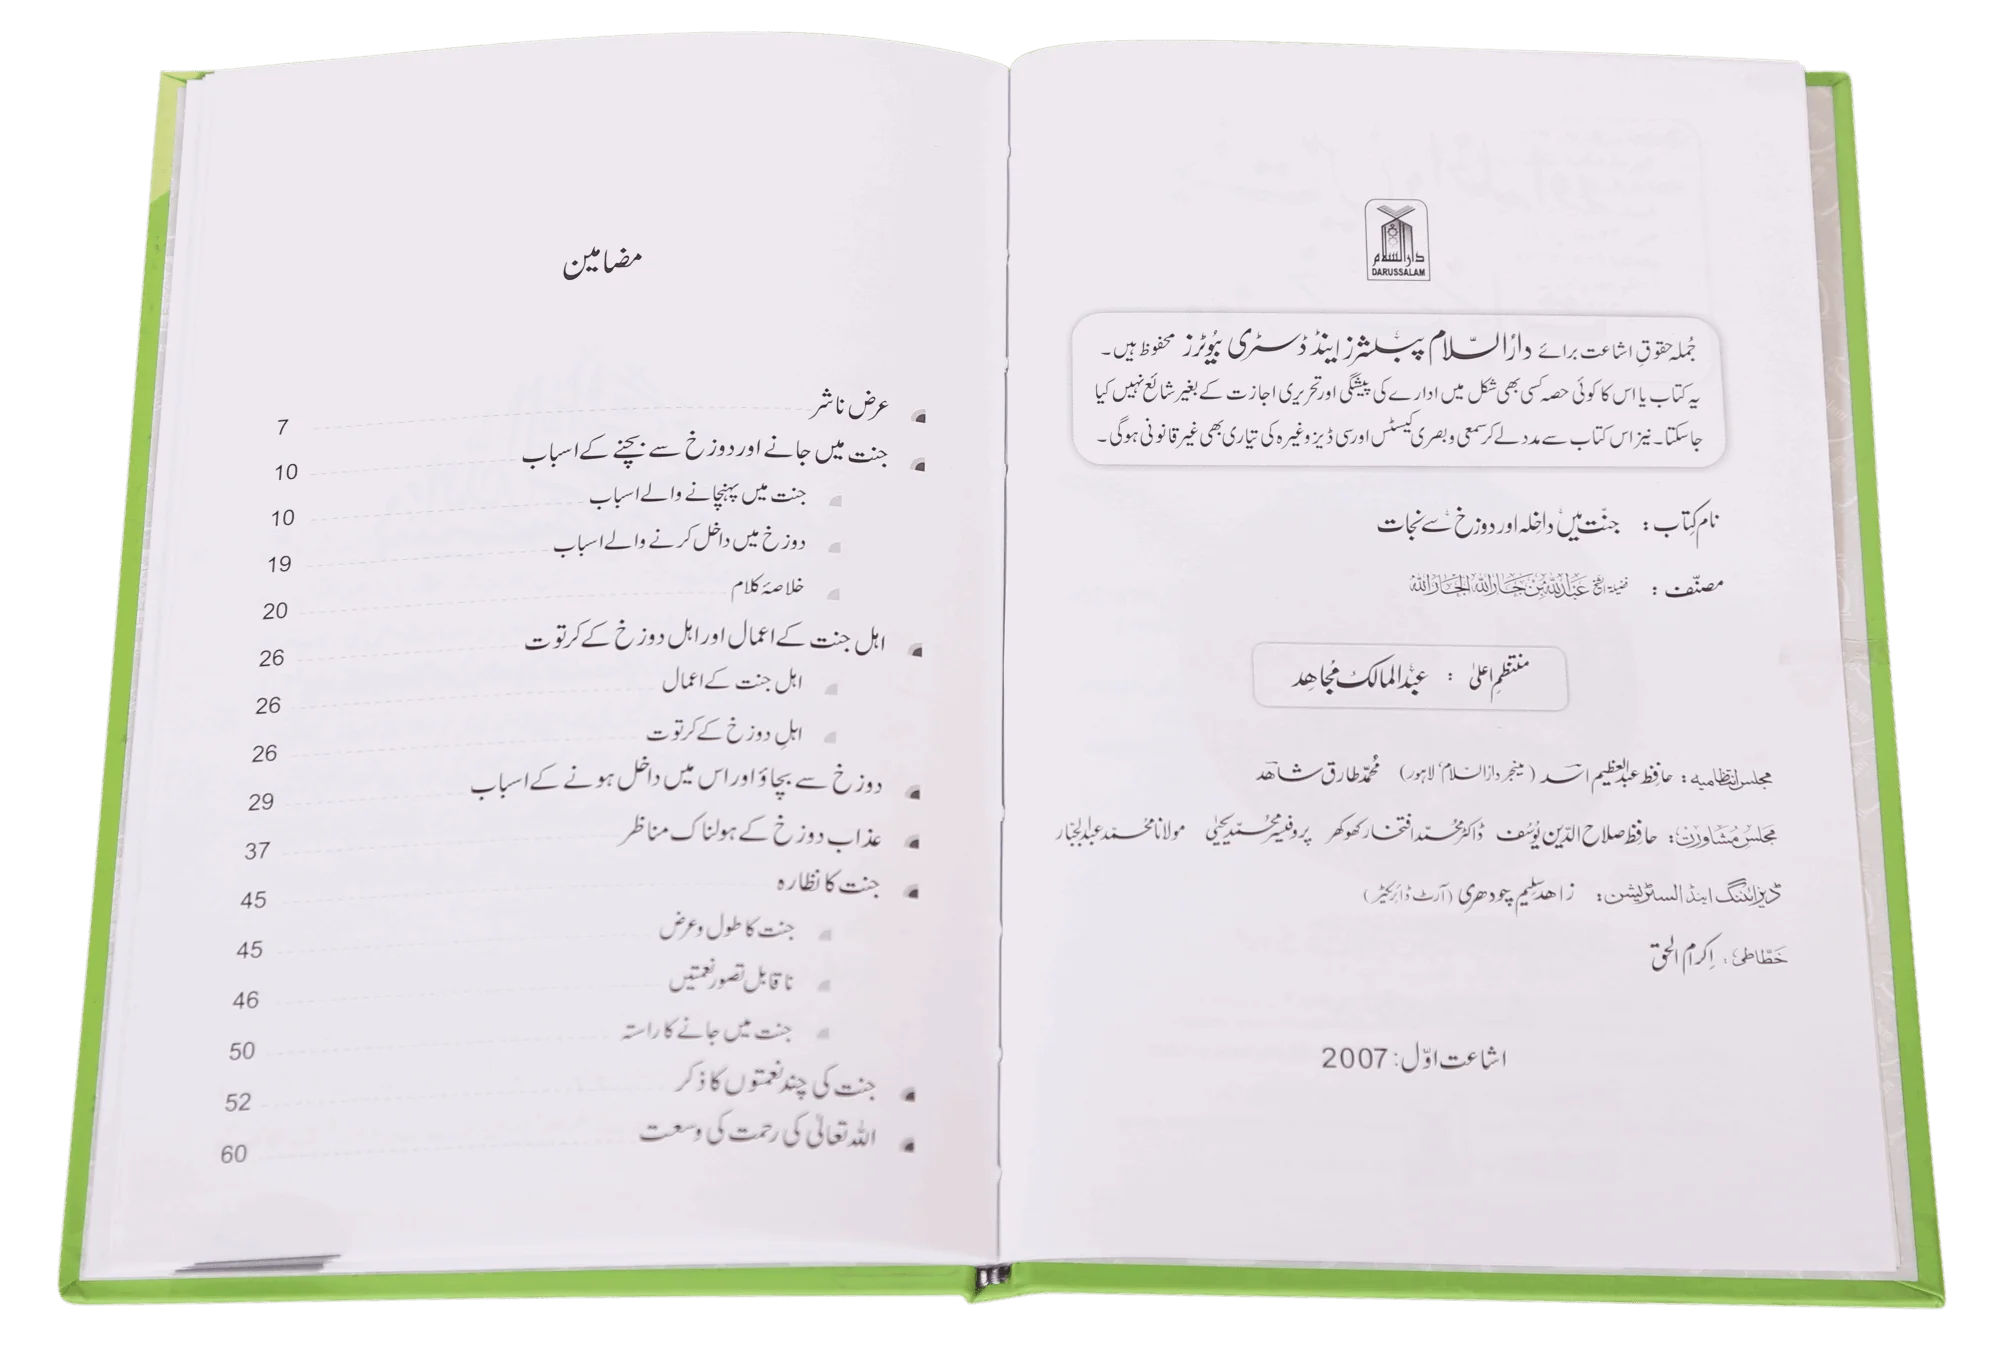 دارالسلام
DARUSSALAM
جُملہ حقوقِ اشاعت برائے دارُالسّلام پبلشرز اینڈ ڈسٹری بیُوٹرز محفوظ ہیں۔
یہ کتاب یا اس کا کوئی حصہ کسی بھی شکل میں ادارے کی پیشگی اور تحریری اجازت کے بغیر شائع نہیں کیا
جاسکتا۔ نیز اس کتاب سے مدد لے کر سمعی و بصری کیسٹس اور سی ڈیز وغیرہ کی تیاری بھی غیر قانونی ہوگی۔
نام کِتاب: جنّت میں داخِلہ اور دوزخ سے نجات
مصنّف: فضیلۃ الشیخ عبداللہ بن جاراللہ الجاراللہ
منتظمِ اعلیٰ : عبدُالمالک مُجاهِد
مجلس انتظامیہ: حافظ عبدالعظیم اسد (مینجر دارُالسلام، لاہور) محمّد طارق شاهد
مجلس مُشاورت: حافِظ صلاح الدّین یُوسُف ڈاکٹر محمّد افتخار کھوکھر پروفیسر محمّد یحییٰ مولانا محمّد عبدالجبّار
ڈیزائننگ اینڈ السٹریشن: زاهد سلِیم چودهری (آرٹ ڈائریکٹر)
خطّاطی: اِکرامُ الحق
اشاعت اوّل: 2007
مضامین
عرض ناشر 7
جنت میں جانے اور دوزخ سے بچنے کے اسباب 10
جنت میں پہنچانے والے اسباب 10
دوزخ میں داخل کرنے والے اسباب 19
خلاصۂ کلام 20
اہل جنت کے اعمال اور اہل دوزخ کے کرتوت 26
اہل جنت کے اعمال 26
اہلِ دوزخ کے کرتوت 26
دوزخ سے بچاؤ اور اس میں داخل ہونے کے اسباب 29
عذاب دوزخ کے ہولناک مناظر 37
جنت کا نظارہ 45
جنت کا طول و عرض 45
ناقابل تصور نعمتیں 46
جنت میں جانے کا راستہ 50
جنت کی چند نعمتوں کا ذکر 52
اللہ تعالٰی کی رحمت کی وسعت 60